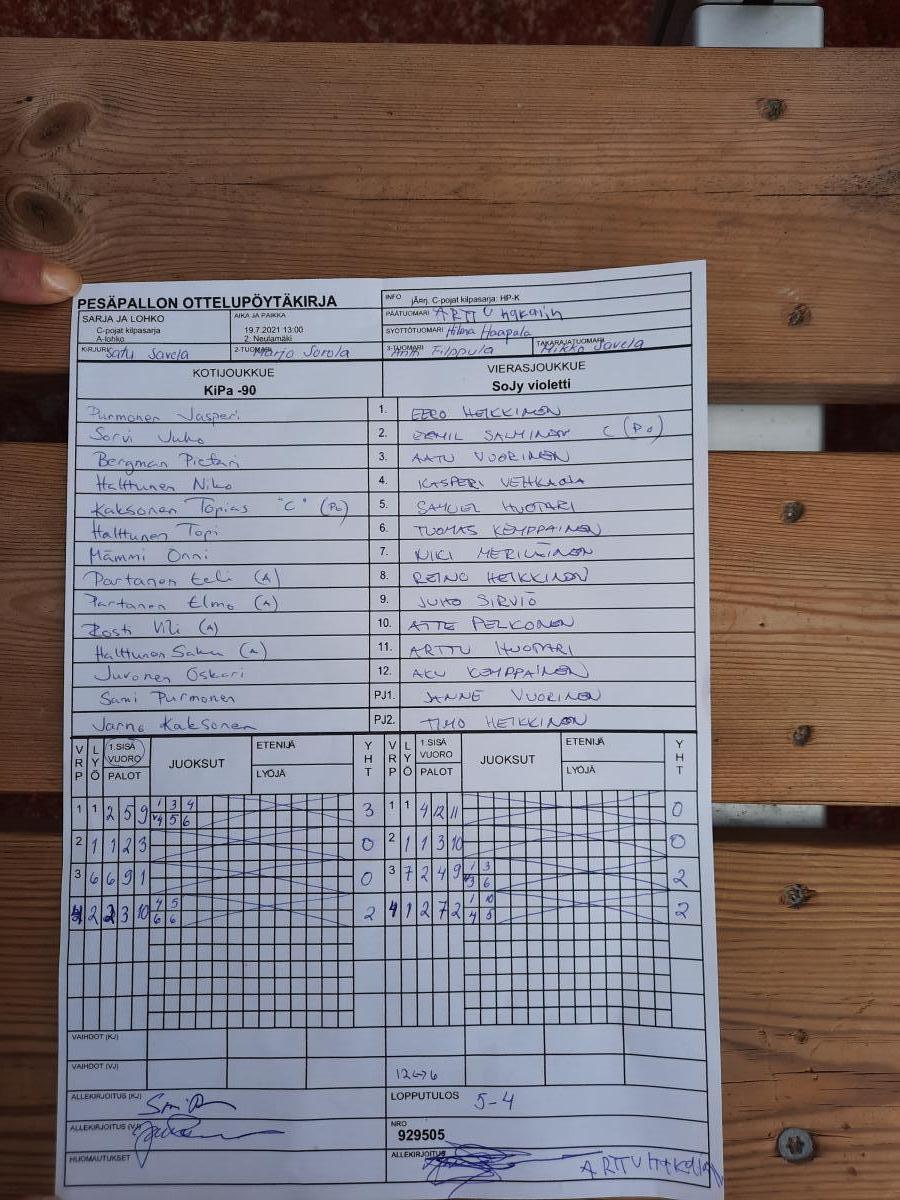 PESÄPALLON OTTELUPÖYTÄKIRJA
INFO jÃ¤rj. C-pojat kilpasarja: HP-K
SARJA JA LOHKO
C-pojat kilpasarja
A-lohko
AIKA JA PAIKKA
19.7.2021 13:00
2: Neulamäki
PÄÄTUOMARI ARTTU
SYÖTTÖTUOMARI Hilma Haapala
KIRJURI Satu Savela
2-TUOMARI Marjo Sorola
3-TUOMARI Antti Filppula
TAKARAJATUOMARI Mikko Savela
KOTIJOUKKUE
KiPa -90
VIERASJOUKKUE
SoJy violetti
Purmonen Jasperi 1. EERO HEIKKINEN
Sorvi Juho 2. EEMIL SALMINEN C (Po)
Bergman Pietari 3. AATU VUORINEN
Halttunen Niko 4. KASPERI VEHKAOJA
Kaksonen Topias "C" (Po) 5. SAMUEL HUOTARI
Halttunen Topi 6. TUOMAS KEMPPAINEN
Mämmi Onni 7. NIKI MERILÄINEN
Partanen Eeli (A) 8. REINO HEIKKINEN
Partanen Elmo (A) 9. JUHO SIRVIÖ
Rosti Vili (A) 10. ATTE PELKONEN
Halttunen Saku (A) 11. ARTTU HUOTARI
Juvonen Oskari 12. AKU KEMPPAINEN
Sami Purmonen PJ1. JANNE VUORINEN
Jarno Kaksonen PJ2. TIMO HEIKKINEN
VRP LYÖ 1.SISÄ VUORO PALOT JUOKSUT ETENIJÄ LYÖJÄ YHT VRP LYÖ 1.SISÄ VUORO PALOT JUOKSUT ETENIJÄ LYÖJÄ YHT
1 1 2 5 9 1 3 4 3 1 1 4 12 11 0
4 5 6
2 1 1 2 3 0 2 1 1 3 10 0
3 6 6 9 1 0 3 7 2 4 9 1 3 2
3 6
4 2 2 3 10 4 5 2 4 1 2 7 2 1 10 2
6 6 4 5
VAIHDOT (KJ)
VAIHDOT (VJ) 12↔6
ALLEKIRJOITUS (KJ)
LOPPUTULOS 5-4
ALLEKIRJOITUS (VJ)
NRO
929505
HUOMAUTUKSET
ALLEKIRJOITUS ARTTU